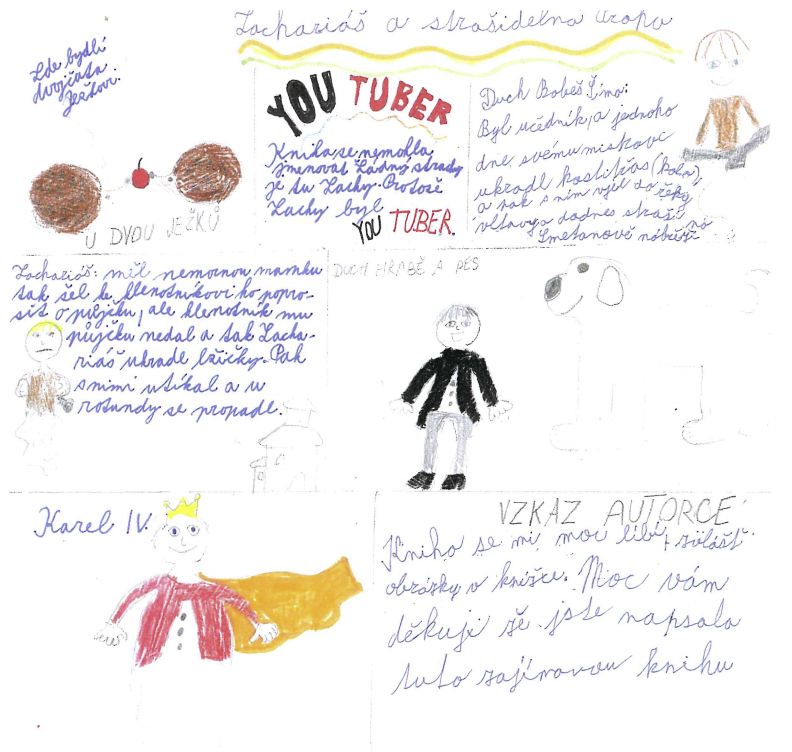 Zachariáš a strašidelná tropa
Zde bydlí
dvojčata
Ježkovi.
U DVOU JEŽKŮ
YOU TUBER
Kniha se nemohla
jmenovat žádný strady
je tu Zachy. Protože
Zachy byl
YOU TUBER.
Duch Bobeš Šimo:
Byl učedník, a jednoho
dne, svému miskovi
ukradl kostitřas (kola),
a pak s ním vjel do řeky
vltavy a dodnes straší na
Smetanově nábřeží
Zachariáš: měl nemocnou mamku
tak šel ke klenotníkovi ho popro-
sit o půjčku, ale klenotník mu
půjčku nedal a tak Zacha-
riáš ukradl lžičky. Pak
s nimi utíkal a u
rotundy se propadl.
DUCH HRABĚ A PES
Karel IV.
VZKAZ AUTORCE
Kniha se mi moc líbí, zvlášť
obrázky v knížce. Moc vám
děkuji že jste napsala
tuto zajímavou knihu